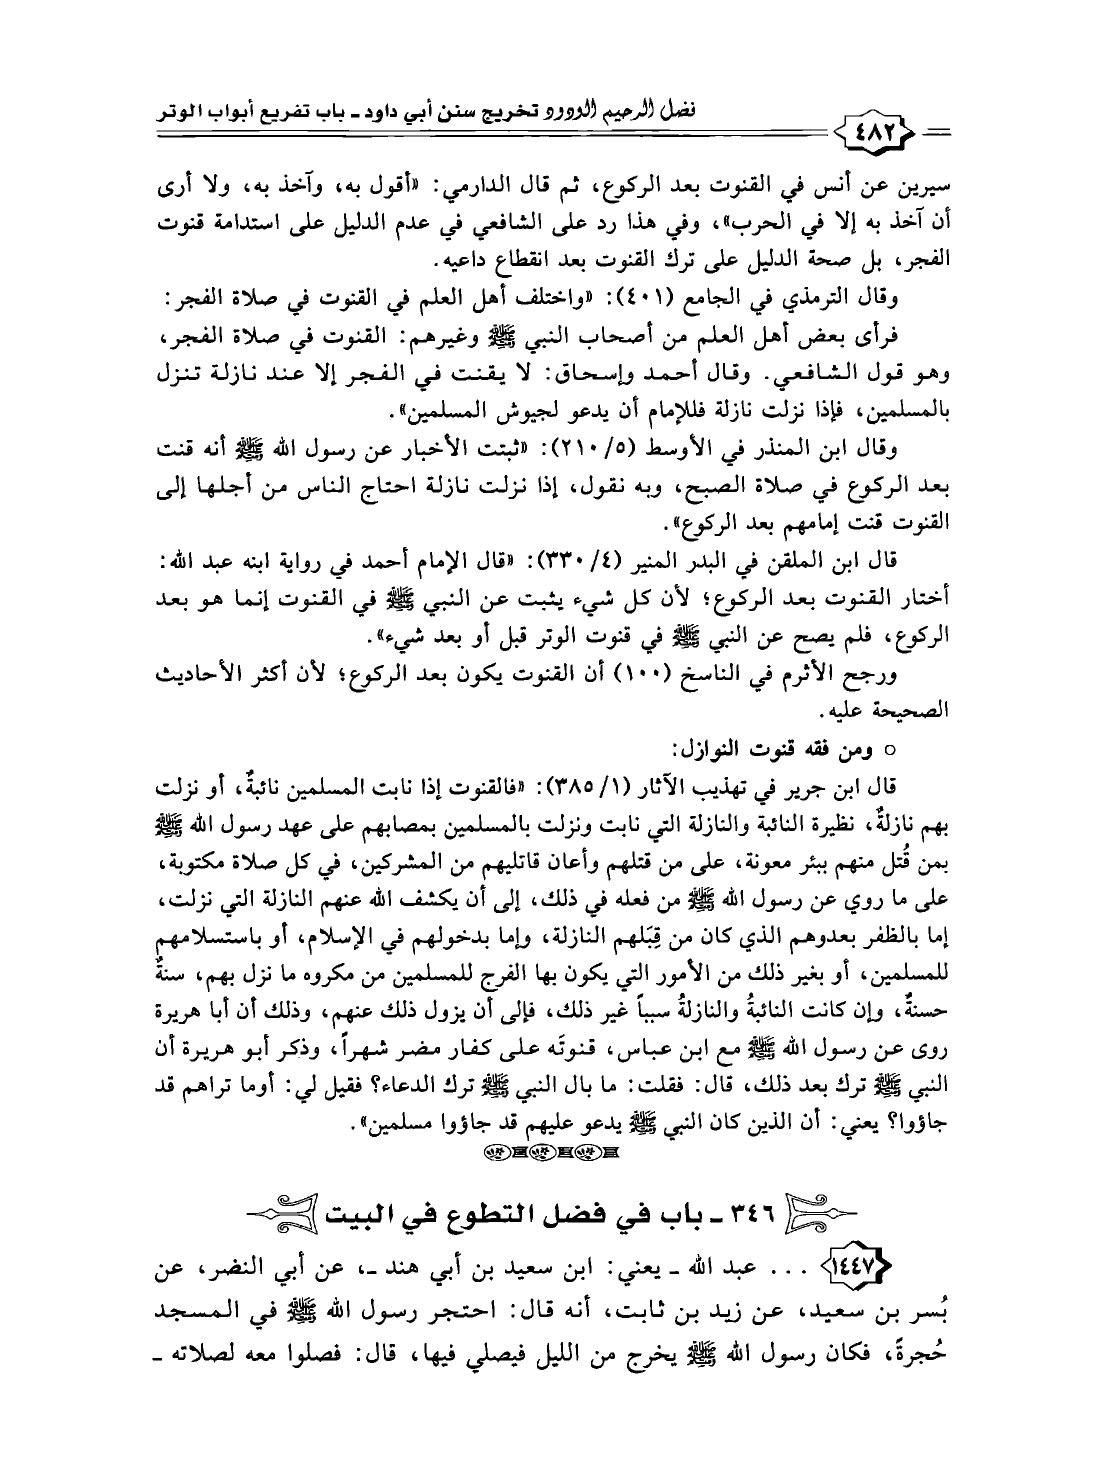 فضل الرحيم الودود تخريج سنن أبي داود ـ باب تفريع أبواب الوتر
٤٨٢
سيرين عن أنس في القنوت بعد الركوع، ثم قال الدارمي: «أقول به، وآخذ به، ولا أرى
أن آخذ به إلا في الحرب»، وفي هذا رد على الشافعي في عدم الدليل على استدامة قنوت
الفجر، بل صحة الدليل على ترك القنوت بعد انقطاع داعيه.
وقال الترمذي في الجامع (٤٠١): «واختلف أهل العلم في القنوت في صلاة الفجر:
فرأى بعض أهل العلم من أصحاب النبي ﷺ وغيرهم: القنوت في صلاة الفجر،
وهو قول الشافعي. وقال أحمد وإسحاق: لا يقنت في الفجر إلا عند نازلة تنزل
بالمسلمين، فإذا نزلت نازلة فللإمام أن يدعو لجيوش المسلمين».
وقال ابن المنذر في الأوسط (٢١٠/٥): «ثبتت الأخبار عن رسول الله ﷺ أنه قنت
بعد الركوع في صلاة الصبح، وبه نقول، إذا نزلت نازلة احتاج الناس من أجلها إلى
القنوت قنت إمامهم بعد الركوع».
قال ابن الملقن في البدر المنير (٣٣٠/٤): «قال الإمام أحمد في رواية ابنه عبد الله:
أختار القنوت بعد الركوع؛ لأن كل شيء يثبت عن النبي ﷺ في القنوت إنما هو بعد
الركوع، فلم يصح عن النبي ﷺ في قنوت الوتر قبل أو بعد شيء».
ورجح الأثرم في الناسخ (١٠٠) أن القنوت يكون بعد الركوع؛ لأن أكثر الأحاديث
الصحيحة عليه.
○ ومن فقه قنوت النوازل:
قال ابن جرير في تهذيب الآثار (٣٨٥/١): «فالقنوت إذا نابت المسلمين نائبةٌ، أو نزلت
بهم نازلةٌ، نظيرة النائبة والنازلة التي نابت ونزلت بالمسلمين بمصابهم على عهد رسول الله ﷺ
بمن قُتل منهم ببئر معونة، على من قتلهم وأعان قاتليهم من المشركين، في كل صلاة مكتوبة،
على ما روي عن رسول الله ﷺ من فعله في ذلك، إلى أن يكشف الله عنهم النازلة التي نزلت،
إما بالظفر بعدوهم الذي كان من قِبَلهم النازلة، وإما بدخولهم في الإسلام، أو باستسلامهم
للمسلمين، أو بغير ذلك من الأمور التي يكون بها الفرج للمسلمين من مكروه ما نزل بهم، سنةٌ
حسنةٌ، وإن كانت النائبةُ والنازلةُ سبباً غير ذلك، فإلى أن يزول ذلك عنهم، وذلك أن أبا هريرة
روى عن رسول الله ﷺ مع ابن عباس، قنوتَه على كفار مضر شهراً، وذكر أبو هريرة أن
النبي ﷺ ترك بعد ذلك، قال: فقلت: ما بال النبي ﷺ ترك الدعاء؟ فقيل لي: أوما تراهم قد
جاؤوا؟ يعني: أن الذين كان النبي ﷺ يدعو عليهم قد جاؤوا مسلمين».
٣٤٦ ـ باب في فضل التطوع في البيت
١٤٤٧ . . . عبد الله ـ يعني: ابن سعيد بن أبي هند ـ، عن أبي النضر، عن
بُسر بن سعيد، عن زيد بن ثابت، أنه قال: احتجر رسول الله ﷺ في المسجد
حُجرةً، فكان رسول الله ﷺ يخرج من الليل فيصلي فيها، قال: فصلوا معه لصلاته ـ